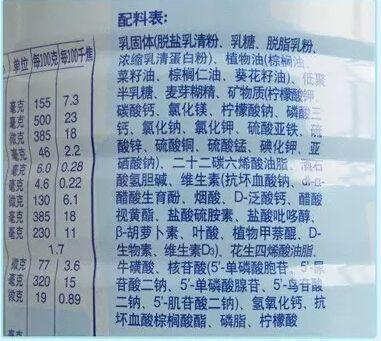 单位 每100克 每100千焦
毫克 155 7.3
毫克 500 23
微克 385 18
毫克 46 2.2
毫克 6.0 0.28
毫克 4.6 0.22
微克 130 6.1
微克 385 18
毫克 230 11
1.7
微克 77 3.6
毫克 320 15
微克 19 0.89
配料表:
乳固体(脱盐乳清粉、乳糖、脱脂乳粉、
浓缩乳清蛋白粉)、植物油(棕榈油、
菜籽油、棕榈仁油、葵花籽油)、低聚
半乳糖、麦芽糊精、矿物质(柠檬酸钾、
碳酸钙、氯化镁、柠檬酸钠、磷酸三
钙、氯化钠、氯化钾、硫酸亚铁、硫
酸锌、硫酸铜、硫酸锰、碘化钾、亚
硒酸钠)、二十二碳六烯酸油脂、酒石
酸氢胆碱、维生素(抗坏血酸钠、dl-α-
醋酸生育酚、烟酸、D-泛酸钙、醋酸
视黄酯、盐酸硫胺素、盐酸吡哆醇、
β-胡萝卜素、叶酸、植物甲萘醌、D-
生物素、维生素D₃)、花生四烯酸油脂、
牛磺酸、核苷酸(5'-单磷酸胞苷、5'-尿
苷酸二钠、5'-单磷酸腺苷、5'-鸟苷酸
二钠、5'-肌苷酸二钠)、氢氧化钙、抗
坏血酸棕榈酸酯、磷脂、柠檬酸